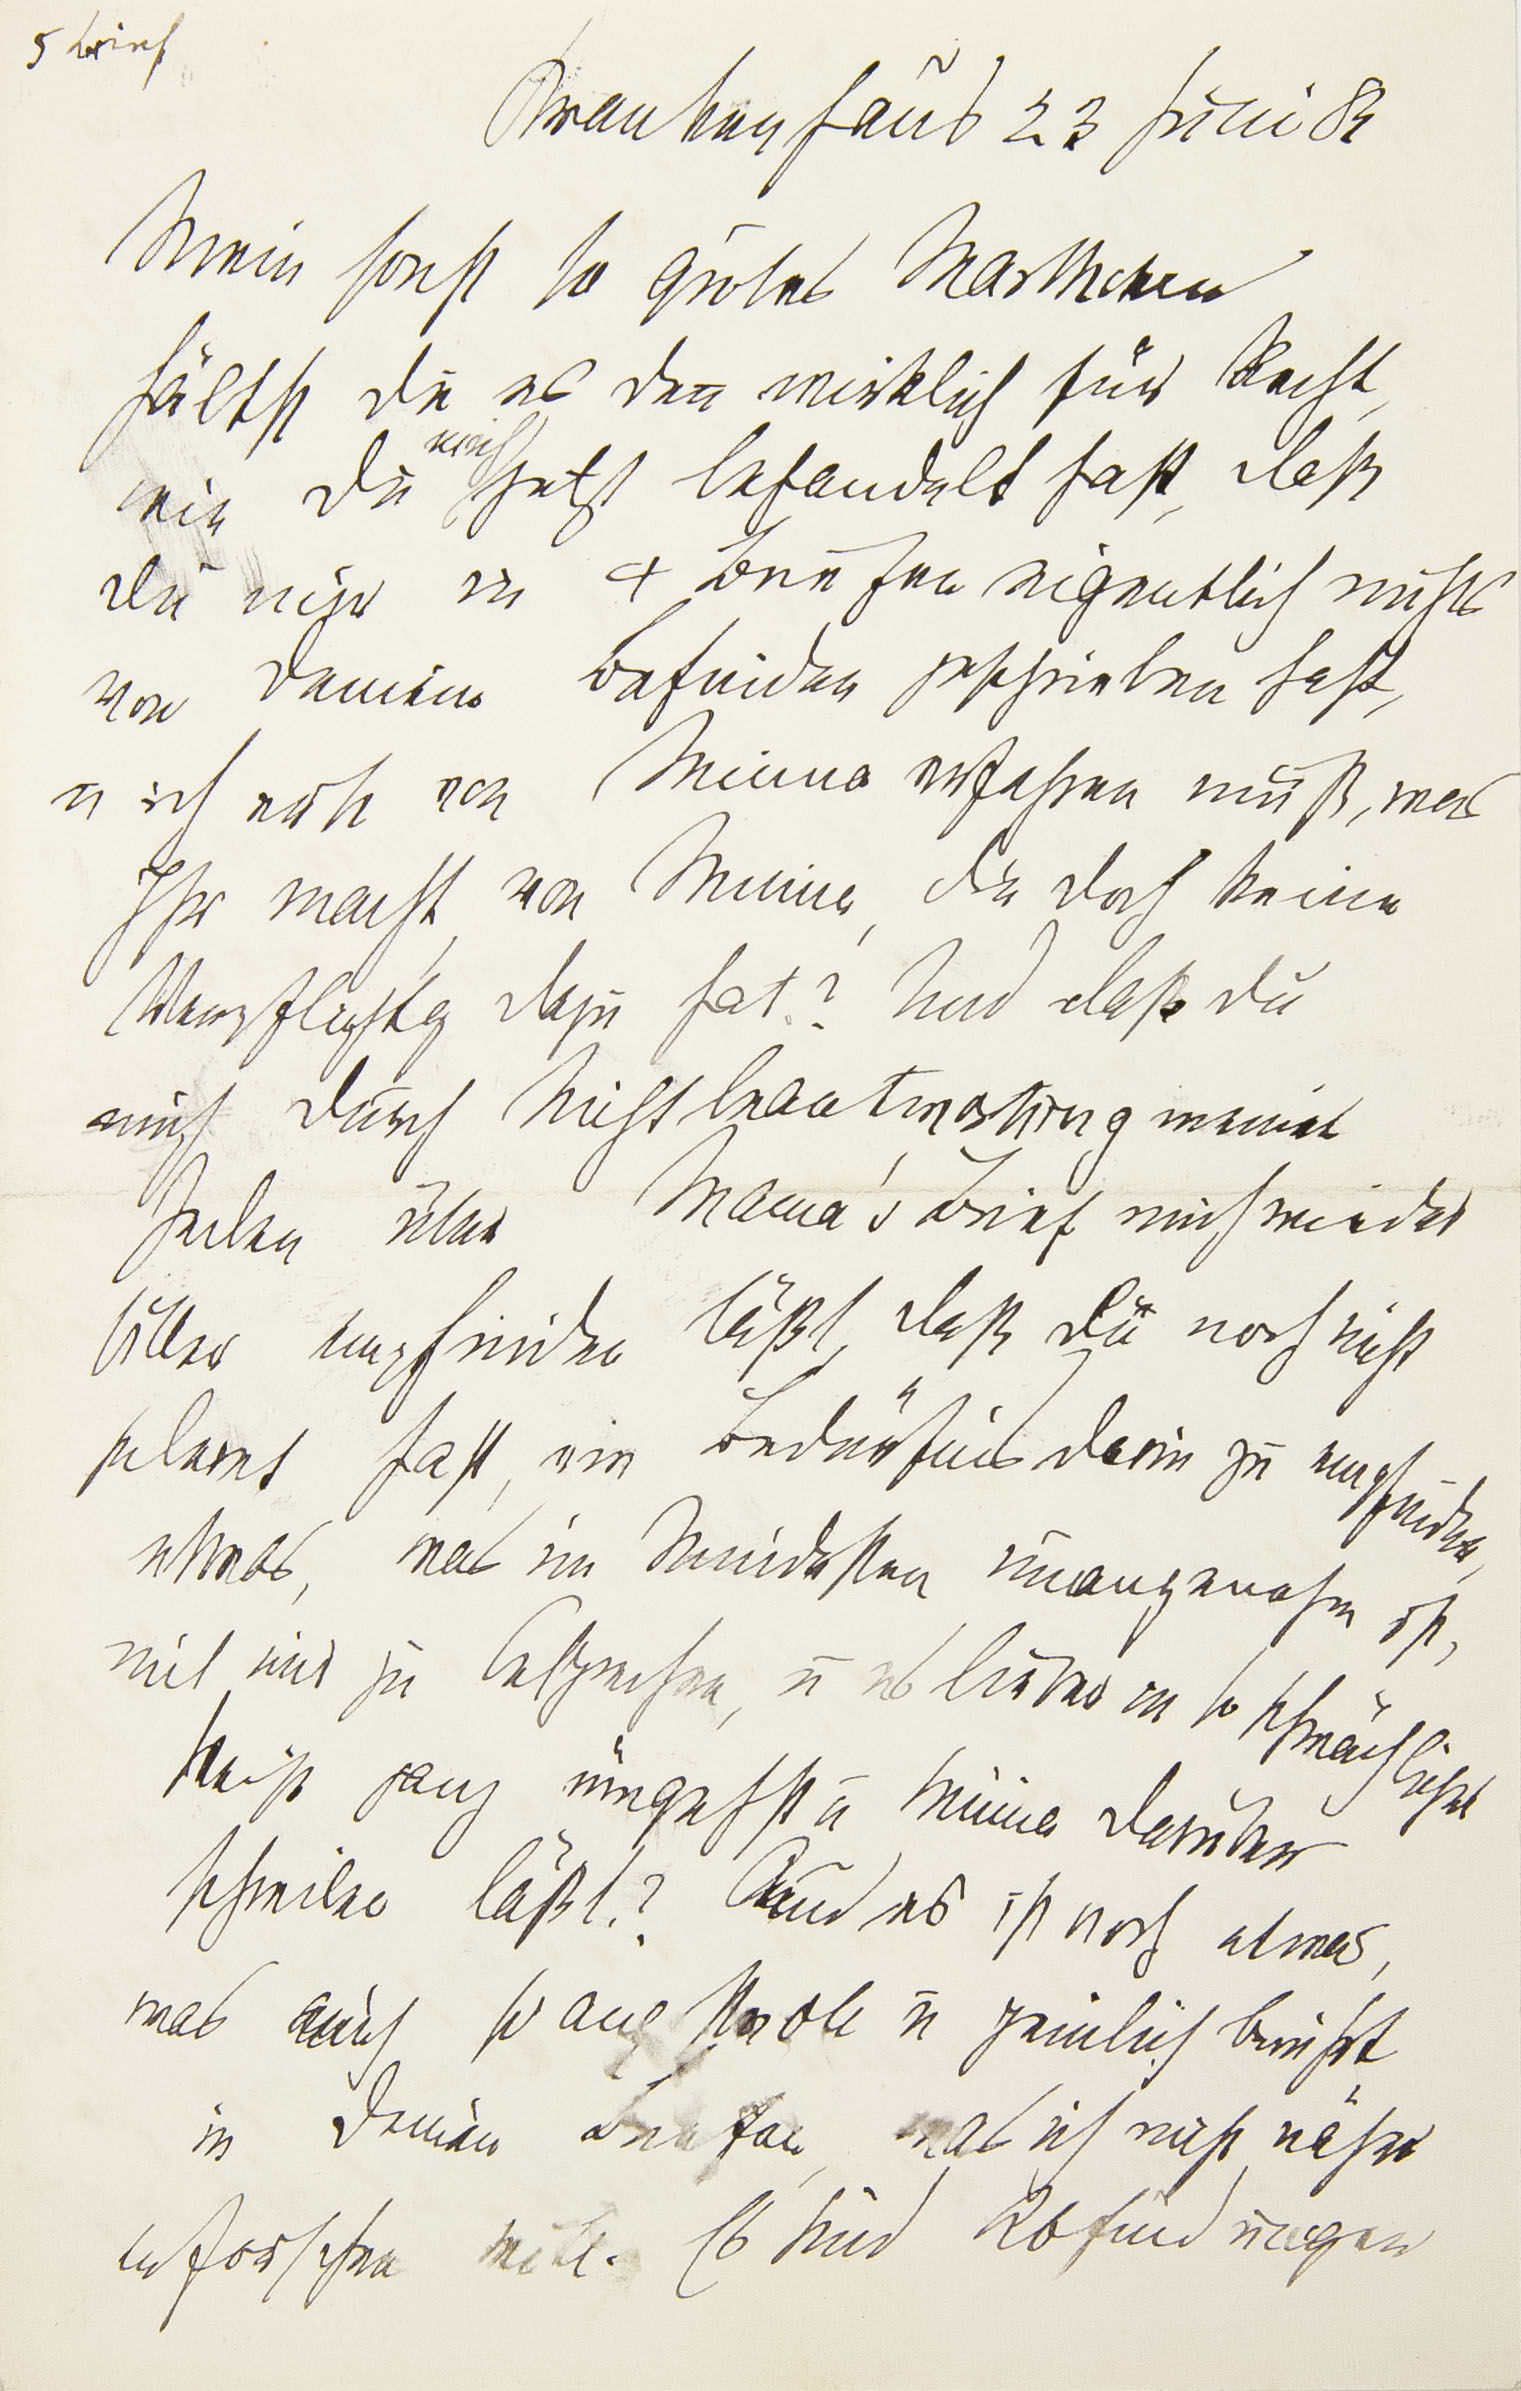 5 Brief
Krankenhaus 23 Juni 84
Mein sonst so gutes Marthchen
hältst Du es den̅ wirklich für Recht,
wie Du mich jetzt behandelt hast, daß
du mir in 4 Briefen eigentlich nichts
von Deinem Befinden geschrieben hast,
u ich erst von Minna erfahren muß, was
Ihr macht, von Minna, die doch keine
Verpflichtg dazu hat? Und daß du
mich durch Nichtbeantwortung meiner
Zeilen über Mama's Brief mich wieder
bitter empfinden läßt, daß du noch nicht
gelernt hast, ein Bedürfnis darin zu empfinden,
etwas, was im Mindesten unangenehm ist,
mit mir zu besprechen, u es lieber in so schwächlicher
Weise ganz umgehst u Minna darüber
schreiben läßt? Und es ist noch etwas,
was mich so ang u peinlich berührt
in Deinen Briefen, was ich nicht näher
erforschen will. Es sind Abfindungen